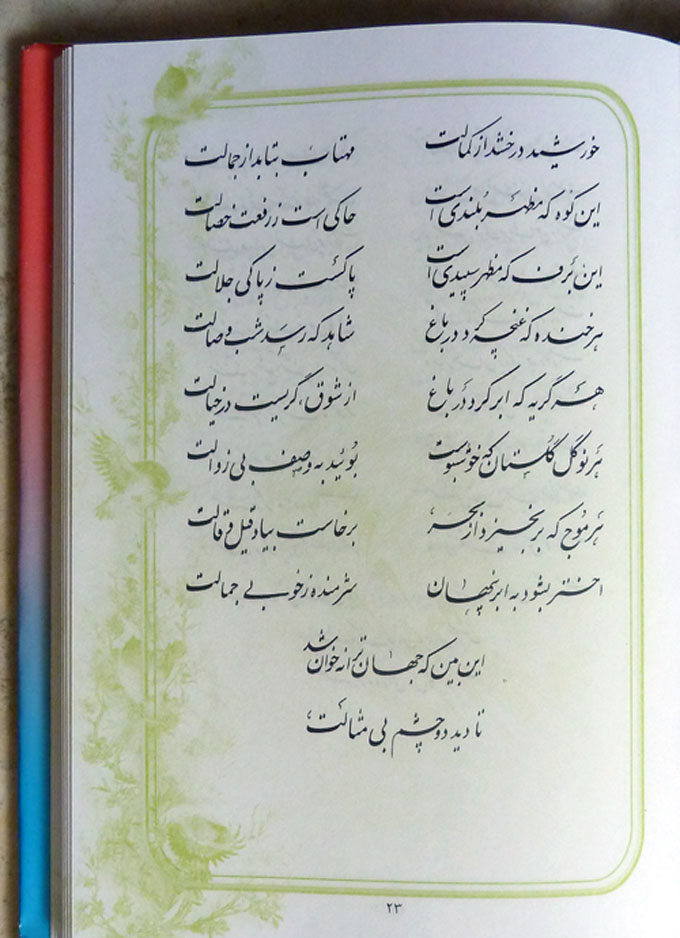 خورشید درخشد از کمالت
مهتاب بتابد از جمالت
این کوه که مظهر بلندی است
حاکی است ز رفعت خصالت
این برف که مظهر سپیدی است
پاکست ز پاکی جلالت
هر خنده که غنچه کرد در باغ
شاهد که رسد شب وصالت
هر گریه که ابر کرد در باغ
از شوق، گریست در خیالت
هر نوگل گلستان که خوشبوست
بوئید به وصف بی زوالت
هر موج که بر بخیزد از بحر
برخاست بیاد قیل و قالت
اختر بشود به ابر پنهان
شرمنده ز خوبی جمالت
این بین که جهان ترانه خوان شد
تا دید دو چشم بی مثالت
۲۳